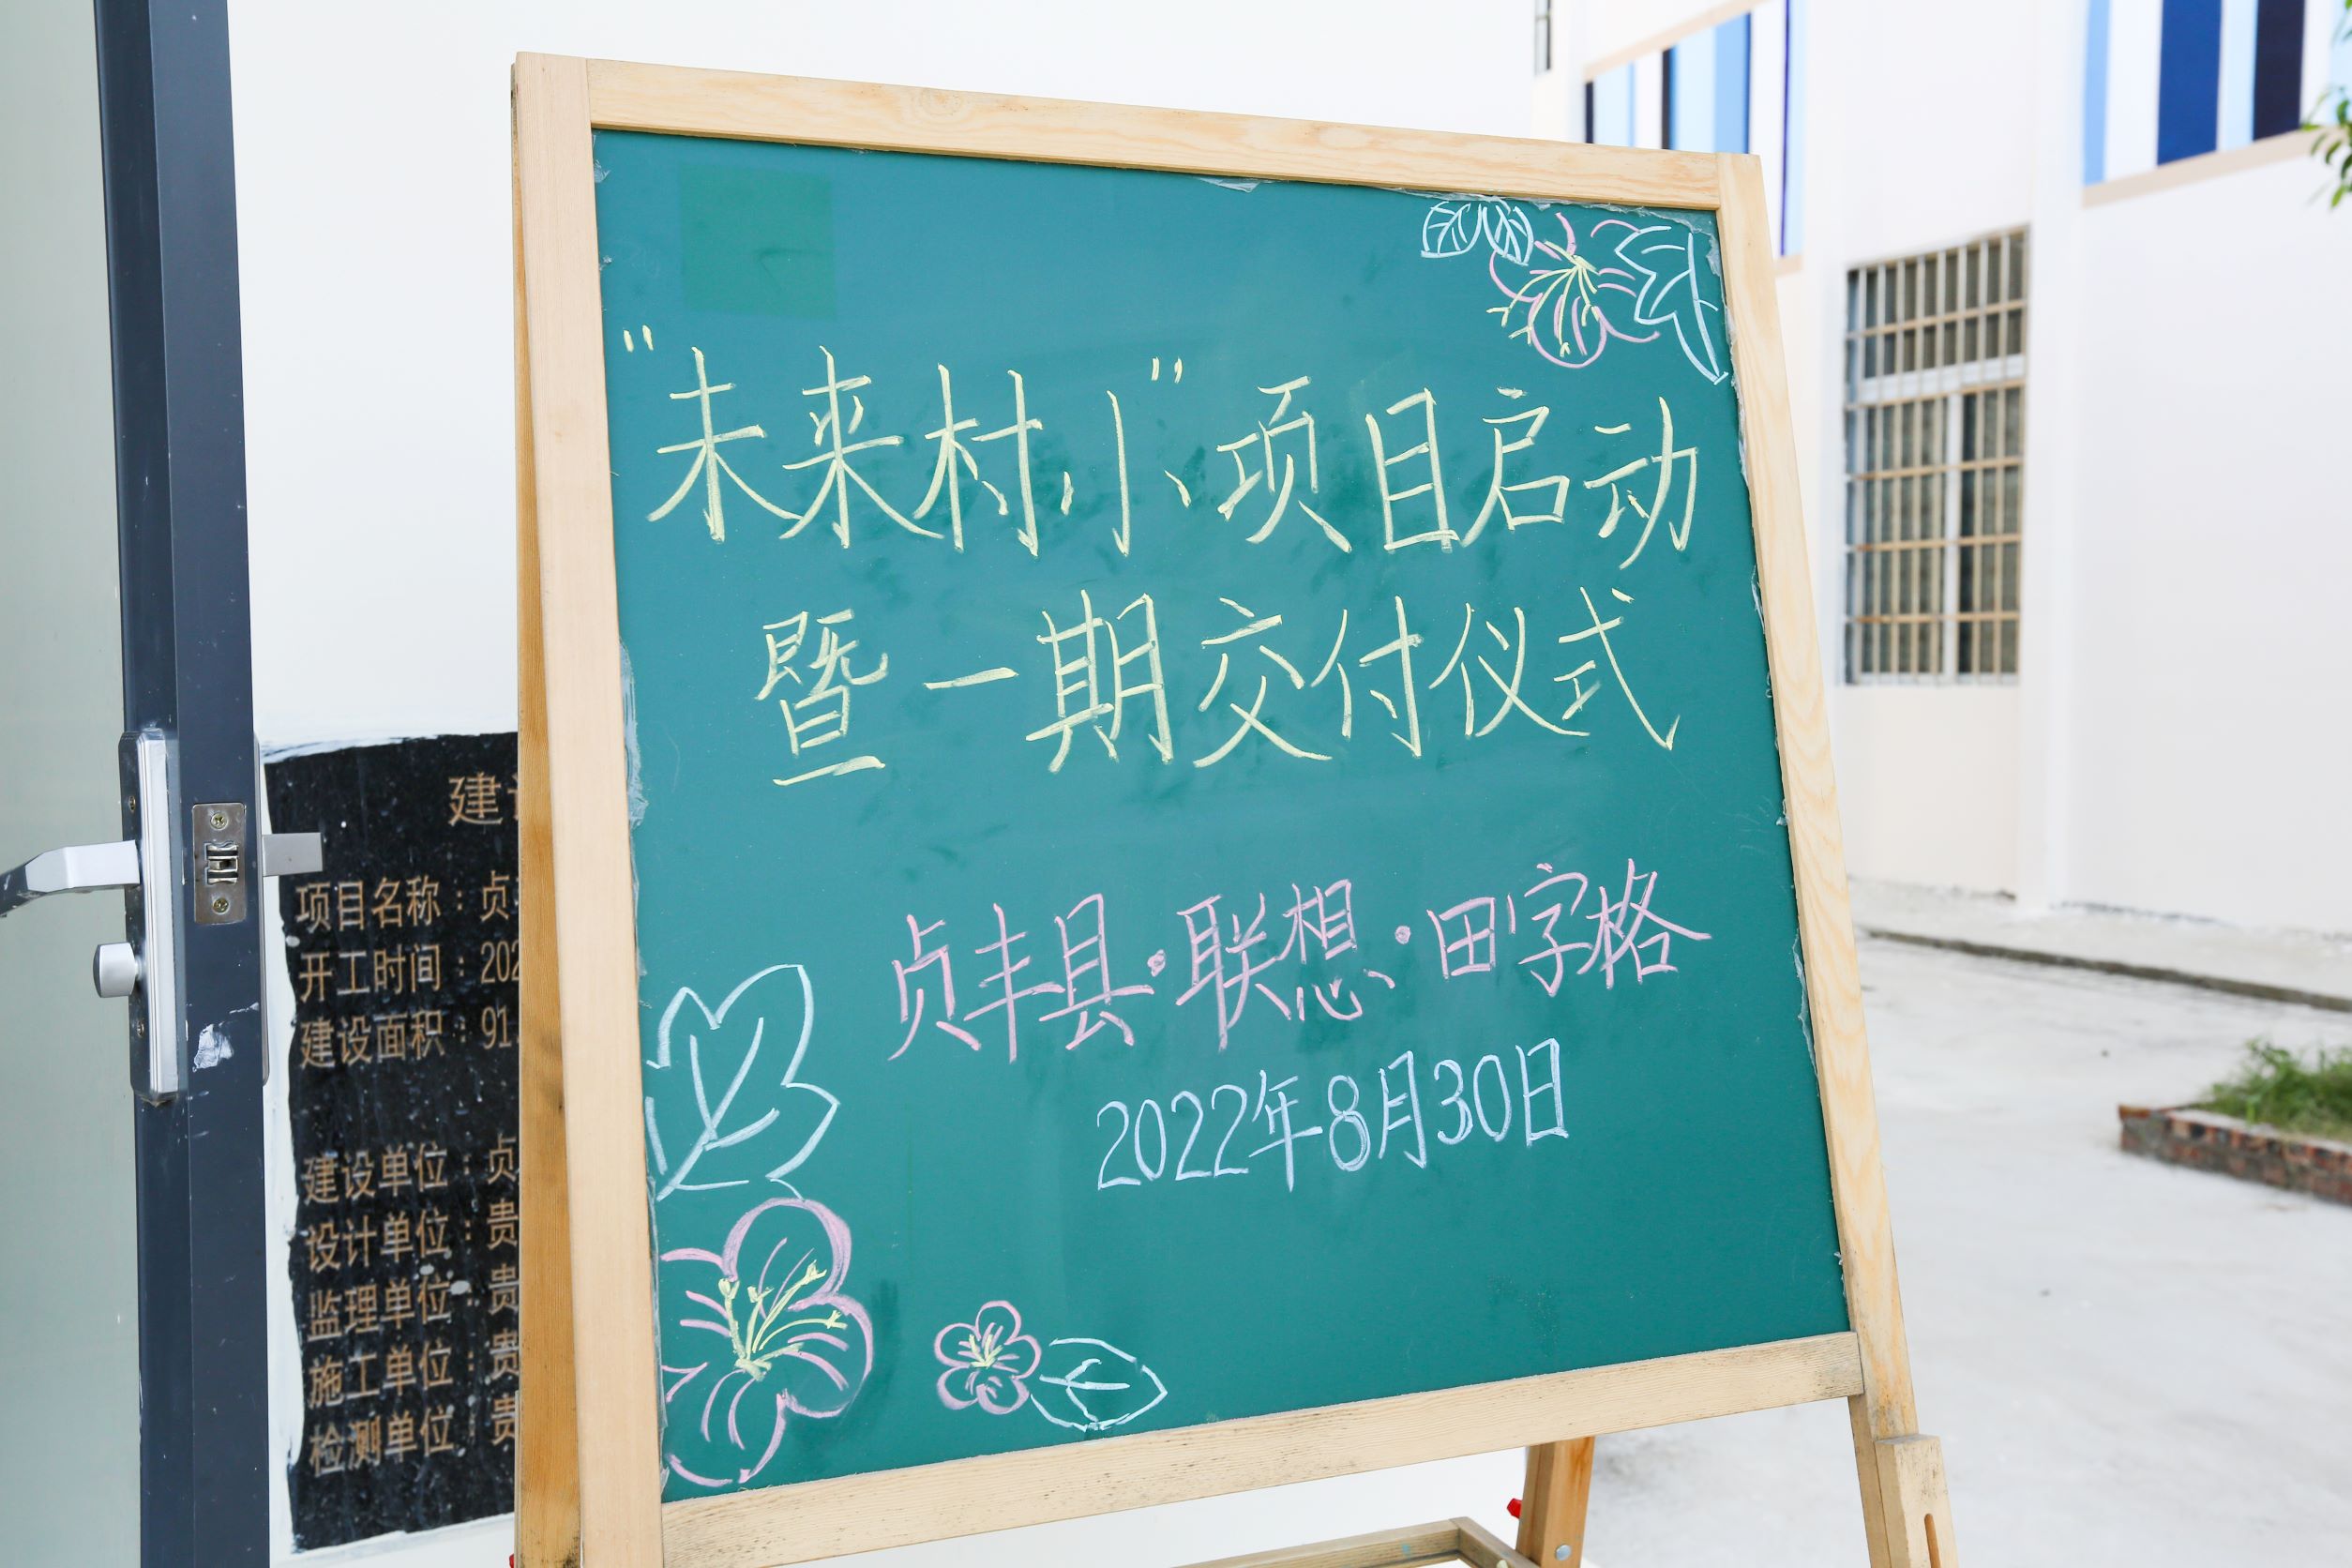 “未来村小”项目启动
暨一期交付仪式
贞丰县·联想·田字格
2022年8月30日
建
项目名称：贞
开工时间：202
建设面积：91
建设单位：贞
设计单位：贵
监理单位：贵
施工单位：贵
检测单位：贵